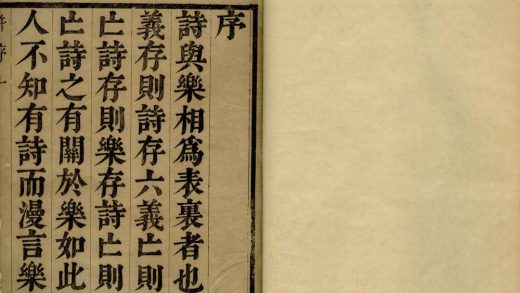 序
詩與樂相爲表裏者也
義存則詩存六義亡則
亡詩存則樂存詩亡則
亡詩之有關於樂如此
人不知有詩而漫言樂